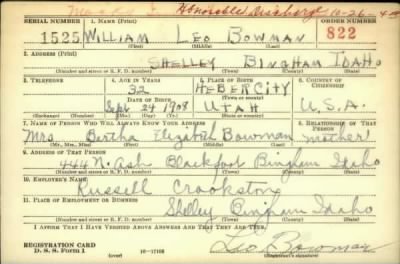 Honorable Discharge 10-26-4
SERIAL NUMBER 1. NAME (Print) ORDER NUMBER
1525 WILLIAM LEO BOWMAN 822
(First) (Middle) (Last)
2. ADDRESS (Print)
SHELLEY BINGHAM IDAHO
(Number and street or R. F. D. number) (Town) (County) (State)
3. TELEPHONE 4. AGE IN YEARS 5. PLACE OF BIRTH 6. COUNTRY OF CITIZENSHIP
32 HEBER CITY
DATE OF BIRTH (Town or county)
Sept. 24 1908 UTAH U.S.A.
(Exchange) (Number) (Mo.) (Day) (Yr.) (State or country)
7. NAME OF PERSON WHO WILL ALWAYS KNOW YOUR ADDRESS 8. RELATIONSHIP OF THAT PERSON
Mrs Bertha Elizabeth Bowman mother
(Mr., Mrs., Miss) (First) (Middle) (Last)
9. ADDRESS OF THAT PERSON
444 N. Ash Blackfoot Bingham Idaho
(Number and street or R. F. D. number) (Town) (County) (State)
10. EMPLOYER'S NAME
Russell Crookston
11. PLACE OF EMPLOYMENT OR BUSINESS
Shelley Bingham Idaho
(Number and street or R. F. D. number) (Town) (County) (State)
I AFFIRM THAT I HAVE VERIFIED ABOVE ANSWERS AND THAT THEY ARE TRUE.
REGISTRATION CARD
D. S. S. Form 1 (over) 16-17105 Leo Bowman